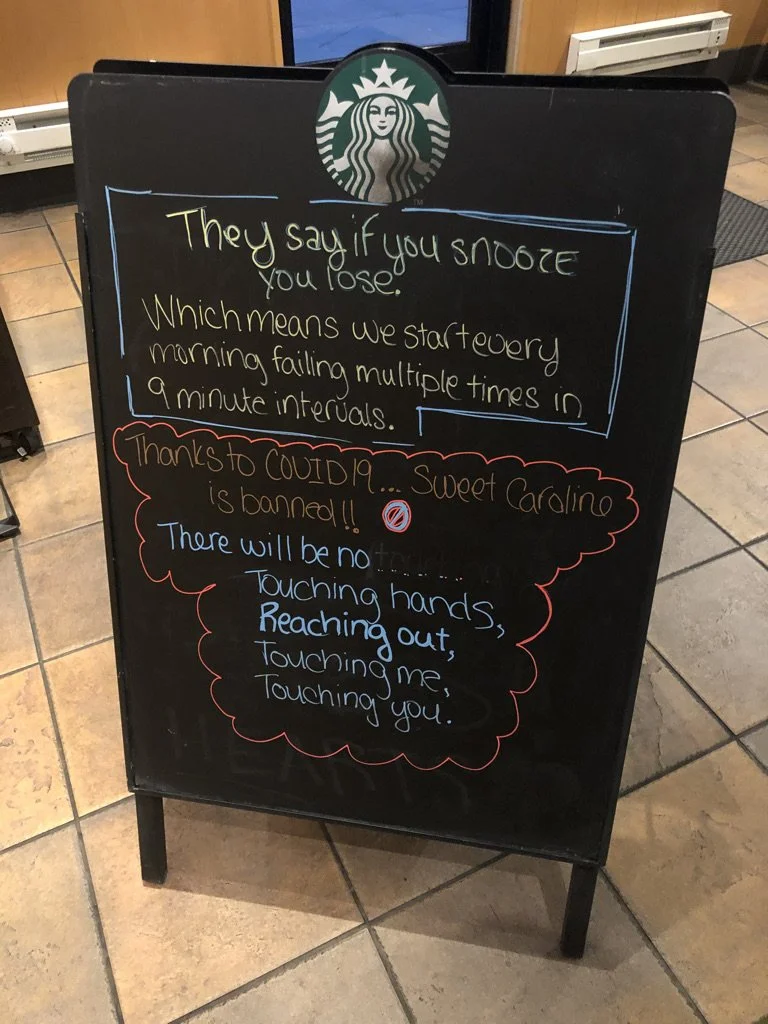 They say if you snooze
you lose.
Which means we start every
morning failing multiple times in
9 minute intervals.
Thanks to COVID19... Sweet Caroline
is banned!!
There will be no......
Touching hands,
Reaching out,
Touching me,
Touching you.